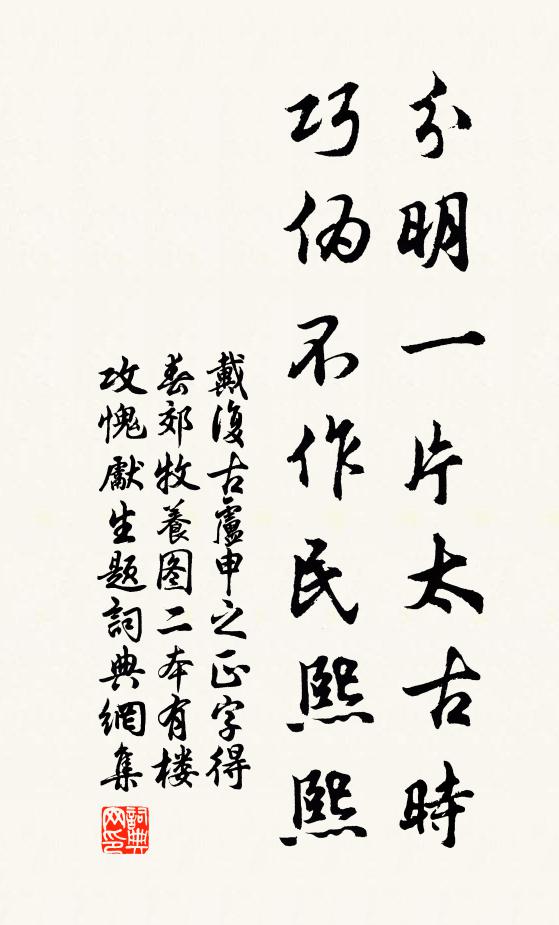 分明一片太古時
巧偽不作民熙熙
戴復古盧申之正字得
春郊牧養图二本有楼
攻愧獻生題詞典網集
詞典
网印